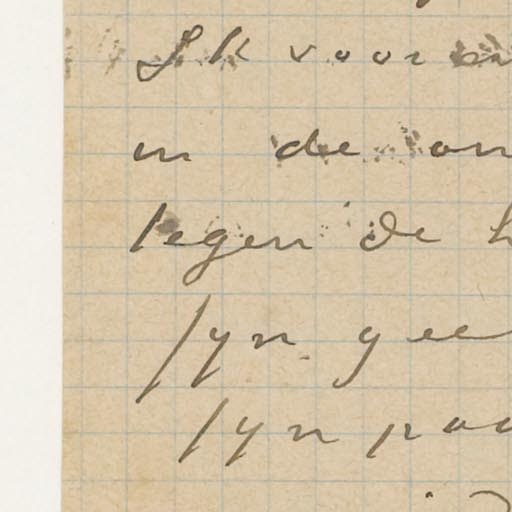 Ik voor
in de on
tegen de h
zyn gee
zyn